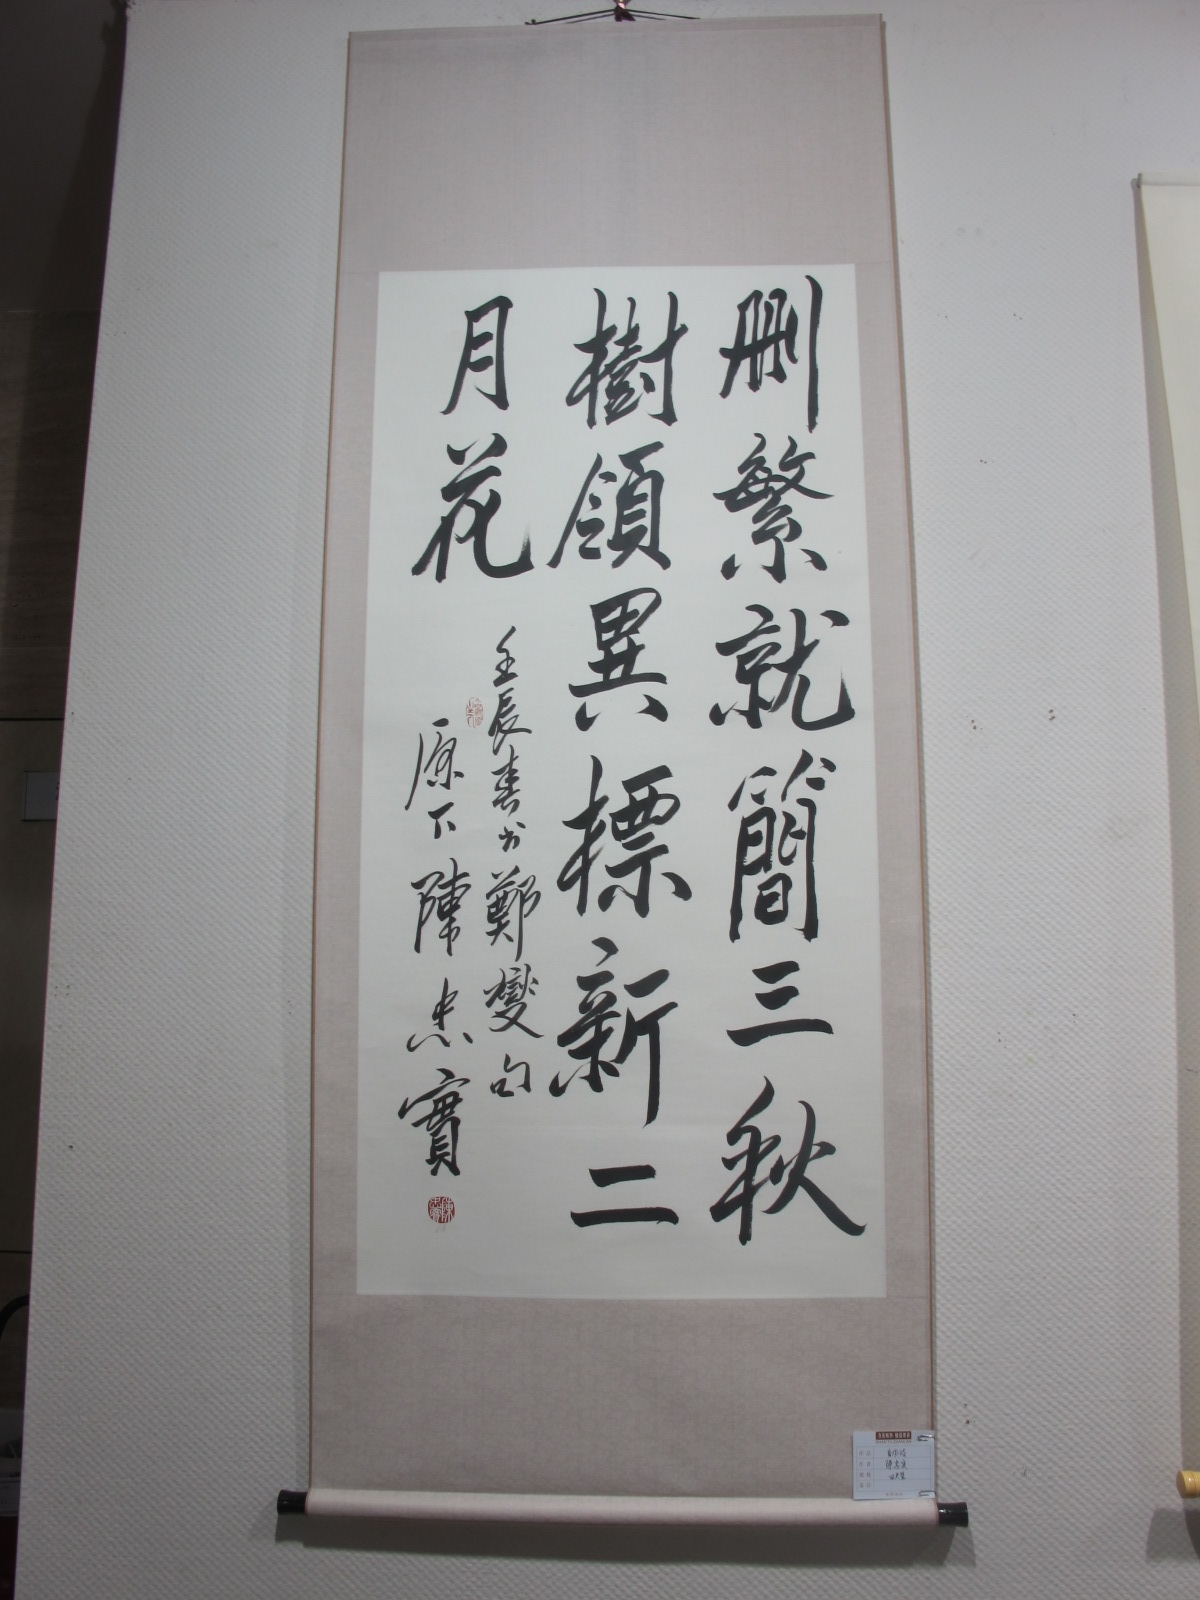 删繁就簡三秋
樹領異標新二
月花
壬辰春书鄭燮句
原下陳忠實